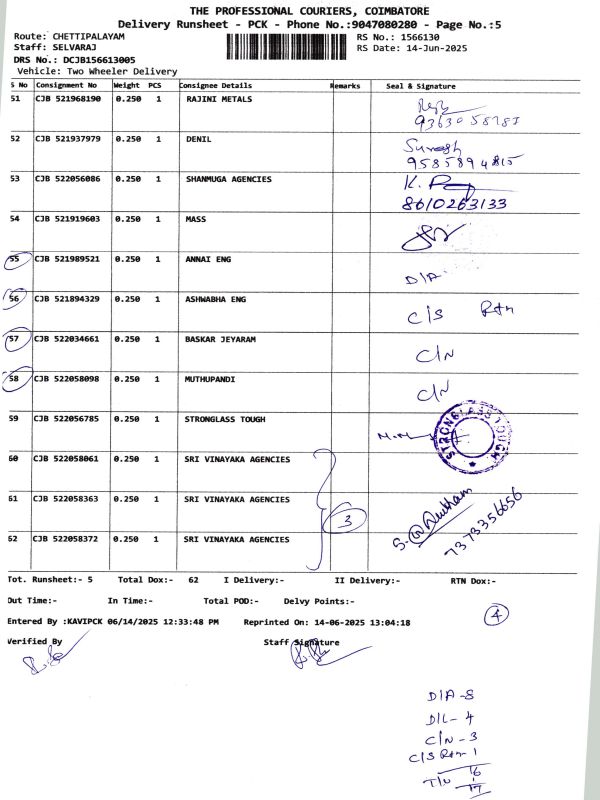 THE PROFESSIONAL COURIERS, COIMBATORE
Delivery Runsheet - PCK - Phone No.:9047080280 - Page No.:5
Route: CHETTIPALAYAM RS No.: 1566130
Staff: SELVARAJ RS Date: 14-Jun-2025
DRS No.: DCJB156613005
Vehicle: Two Wheeler Delivery
S No Consignment No Weight PCS Consignee Details Remarks Seal & Signature
51 CJB 521968190 0.250 1 RAJINI METALS
52 CJB 521937979 0.250 1 DENIL Suresh
9585894815
53 CJB 522056086 0.250 1 SHANMUGA AGENCIES
8610263133
54 CJB 521919603 0.250 1 MASS
55 CJB 521989521 0.250 1 ANNAI ENG D/A
56 CJB 521894329 0.250 1 ASHWABHA ENG C/S Rtn
57 CJB 522034661 0.250 1 BASKAR JEYARAM C/N
58 CJB 522058098 0.250 1 MUTHUPANDI C/N
59 CJB 522056785 0.250 1 STRONGLASS TOUGH STRONGLASS TOUGH
60 CJB 522058061 0.250 1 SRI VINAYAKA AGENCIES
61 CJB 522058363 0.250 1 SRI VINAYAKA AGENCIES 3 7373356656
62 CJB 522058372 0.250 1 SRI VINAYAKA AGENCIES
Tot. Runsheet:- 5 Total Dox:- 62 I Delivery:- II Delivery:- RTN Dox:-
Out Time:- In Time:- Total POD:- Delvy Points:-
4
Entered By :KAVIPCK 06/14/2025 12:33:48 PM Reprinted On: 14-06-2025 13:04:18
Verified By Staff Signature
D/A-8
D/L-4
C/N-3
C/S Rtn-1
16
17